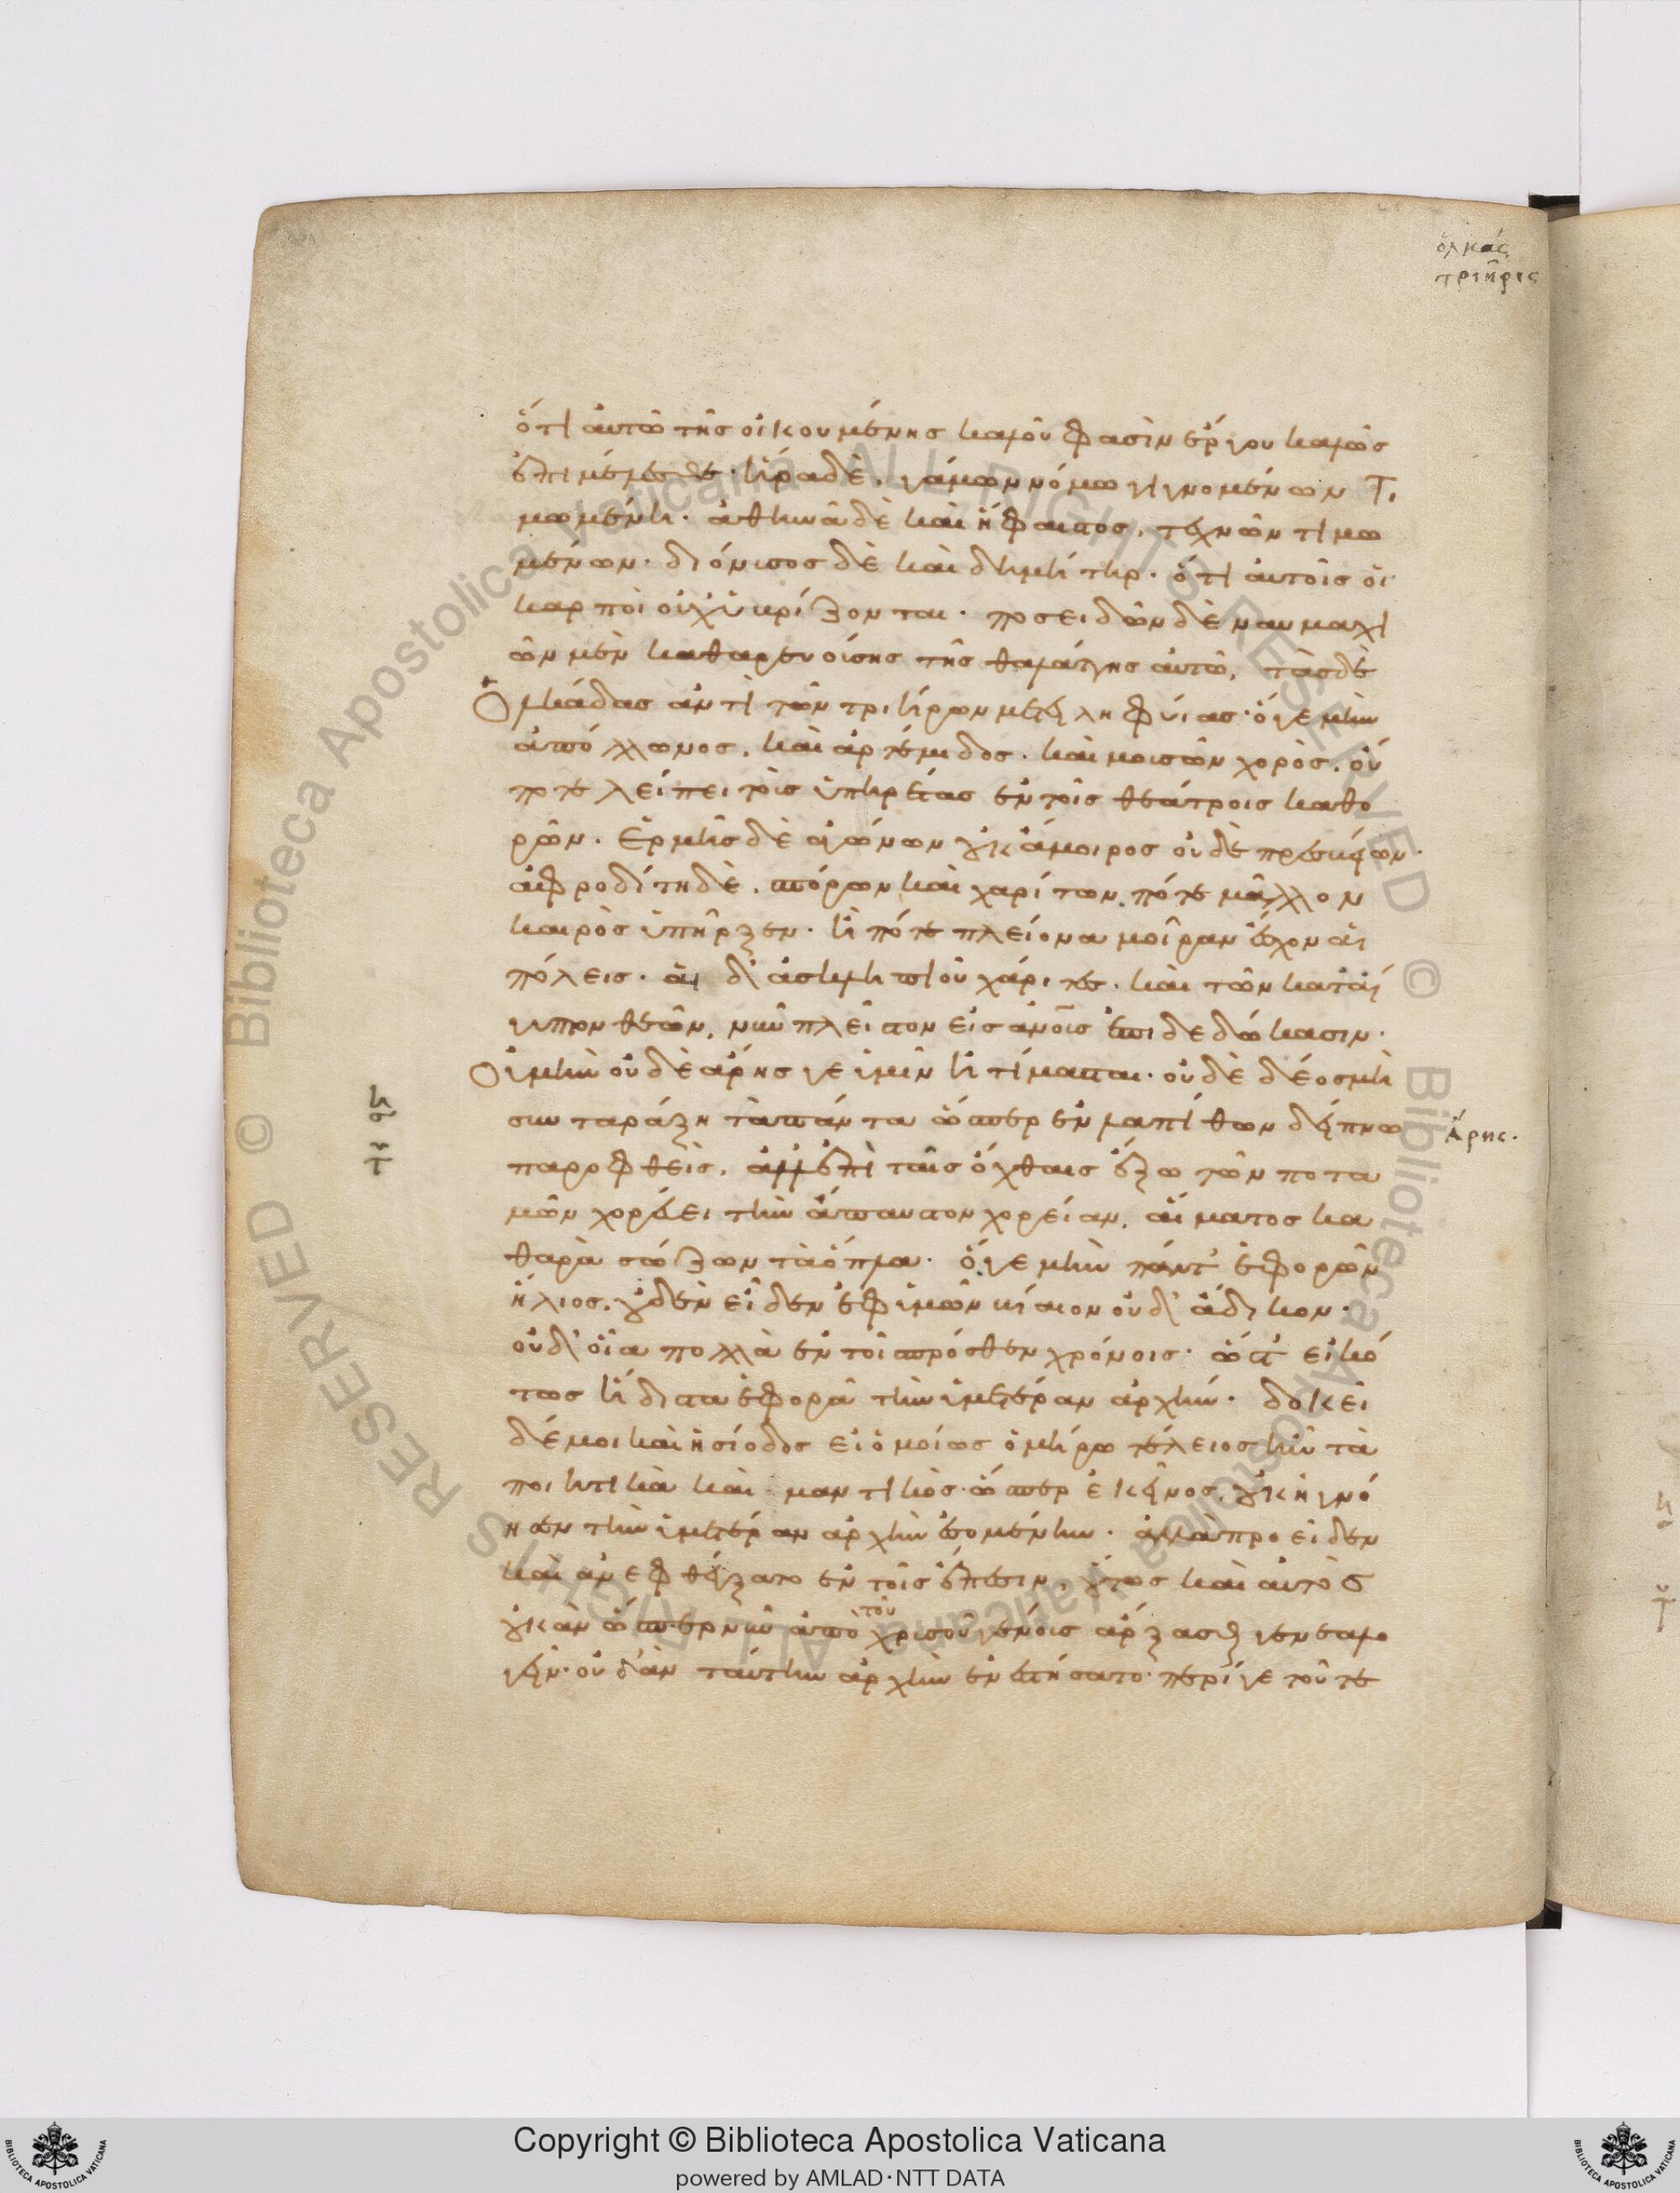 ὁλκάς
τριήρις
ὅτι αὐτῶ τῆς οἰκουμένης καλοῦ φασὶν ἔργου καλῶς
ἐπιμέμεσθε· ἥρα δὲ, γάμων νόμω γιγνομένων τι
μωμένη· ἀθηνᾶ δὲ καὶ ἥφαιστος, τεχνῶν τιμω
μένων· διόνυσος δὲ καὶ δημήτηρ· ὅτι αὐτοῖς οἱ
καρποὶ οὐχ ὑβρίζονται· ποσειδῶν δὲ ναυμαχι
ῶν μὲν καθαρευούσης τῆς θαλάττης αὐτῶ, τὰς δὲ
Ὁλκάδας ἀντὶ τῶν τριήρων μετειληφυίας· ὅ γε μὴν
ἀπόλλωνος, καὶ ἀρτέμιδος· καὶ μουσῶν χορὸς, οὔ
ποτε λείπει τοὺς ὑπηρέτας ἐν τοῖς θεάτροις καθο
ρῶν· Ἑρμῆς δὲ ἀγώνων οὐκ ἄμοιρος οὐδὲ πρεσβειῶν·
ἀφροδίτη δὲ, σπόρων καὶ χαρίτων πότε μᾶλλον
καιρὸς ὑπῆρξεν· ἢ πότε πλείονα μοῖραν ἔσχον αἱ
πόλεις· αἱ δ' ἀσκληπιοῦ χάριτες· καὶ τῶν κατ' αἴ
γυπτον θεῶν, νῦν πλεῖστον εἰς ἀνοῖς ἐπιδεδώκασιν·
Οὐ μὴν οὐδὲ ἄρης γε ὑμῖν ἠτίμασται· οὐδὲ δέος μὴ
συνταράξη τὰ πάντα ὥσπερ ἐν λαπίθων δείπνω
παροφθεὶς, ἀλλ' ἐπὶ ταῖς ὄχθαις ἔξω τῶν ποτα
μῶν χορεύει τὴν ἄπαυστον χορείαν, αἵματος κα
θαρὰ σώζων τὰ ὅπλα· ὅ γε μὴν πάντ' ἐφορῶν
ἥλιος, οὐδὲν εἶδεν ἐφ' ὑμῶν βίαιον οὐδ' ἄδικον·
οὐδ' οἷα πολλὰ ἐν τοῖς πρόσθεν χρόνοις· ὥστ' εἰκό
τως ἥδιστα ἐφορᾶ τὴν ὑμετέραν ἀρχήν· δοκεῖ
δέ μοι καὶ ἡσίοδος εἰ ὁμοίως ὁμήρω τέλειος ἦν τὰ
ποιητικὰ καὶ μαντικὸς· ὥσπερ ἐκεῖνος, οὐκ ἠγνό
ησεν τὴν ὑμετέραν ἀρχὴν ἐσομένην· ἀλλὰ προεῖδεν
καὶ ἀνεφθέγξατο ἐν τοῖς ἔπεσιν, οὕτως καὶ αὐτὸς
οὐκ ἂν ὥσπερ νῦν ἀπὸ τοῦ χρυσοῦ γένους ἄρξασθαι γενεαλο
γεῖν· οὐδ' ἂν ταύτην ἀρχὴν ἐνεστήσατο· περί γε τοῦ τε
Ἄρης·